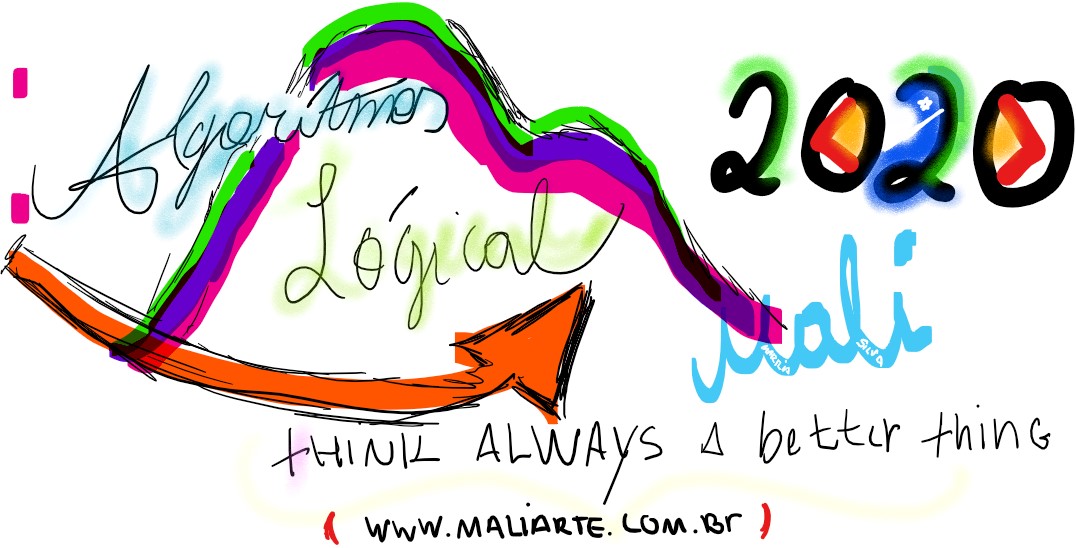 Algoritmos
Lógical
2020
Mali
MARILIA SILVA
THINK ALWAYS A better thing
( WWW.MALIARTE.COM.Br )